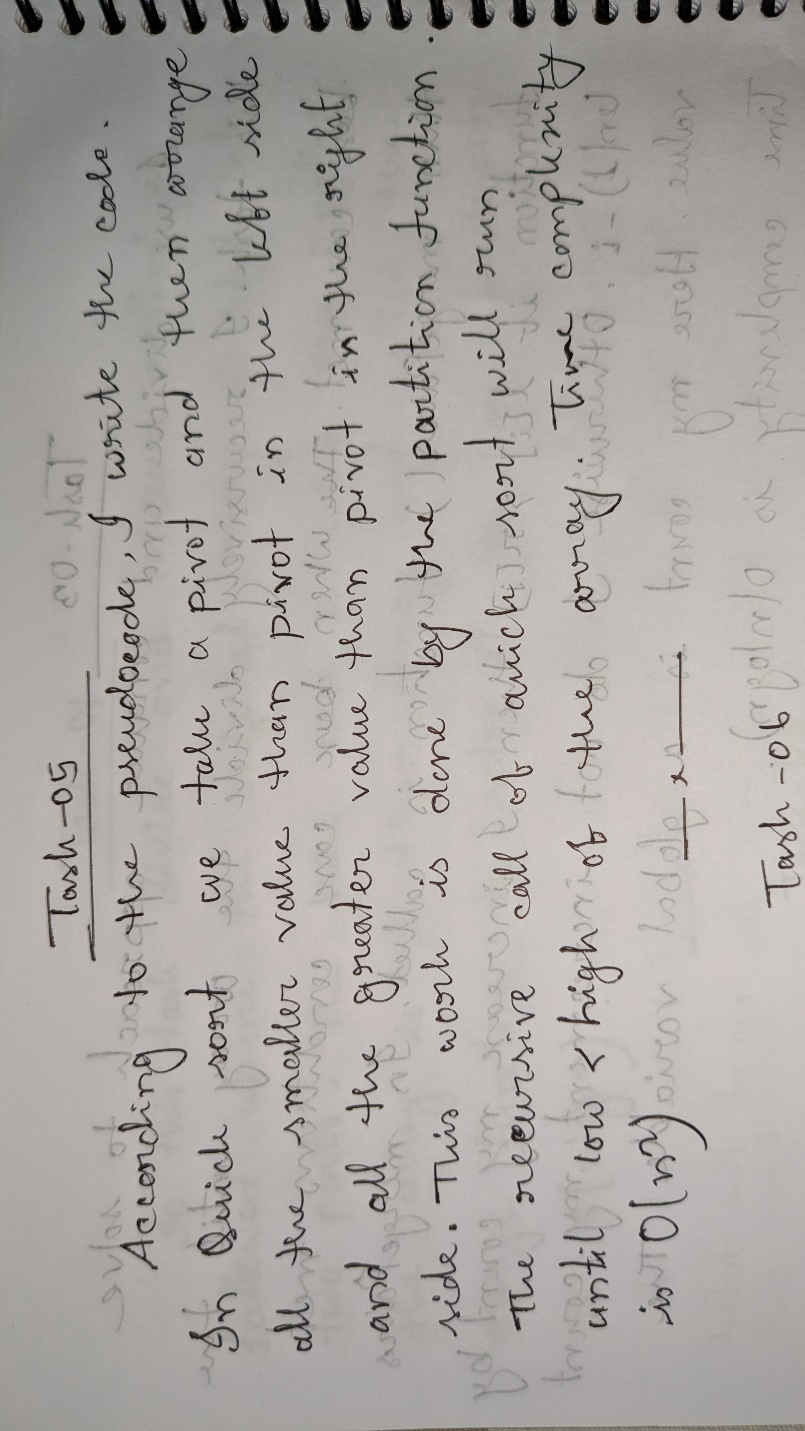 Task-05
According to the pseudocode, I write the code.
In Quick sort we take a pivot and then arrange
all the smaller value than pivot in the left side
and all the greater value than pivot in the right
side. This work is done by the partition function.
The recursive call of quick sort will run
until low < high of the array. Time complexity
is O(n²)
x
Task-06